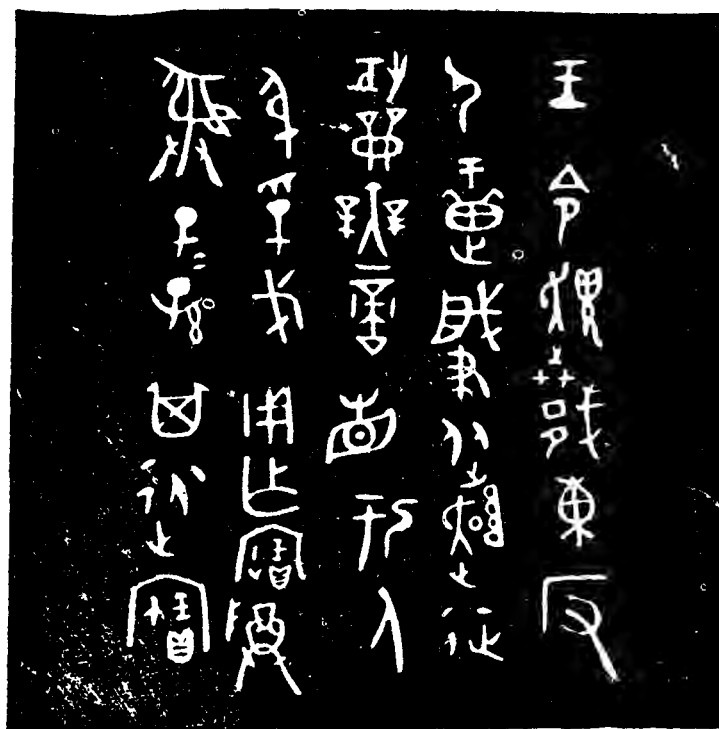 王令趞捷東反
尸疐肇从趞征
攻龠無啻省于人
身孚戈用乍寶尊
彝子=孫=其永寶